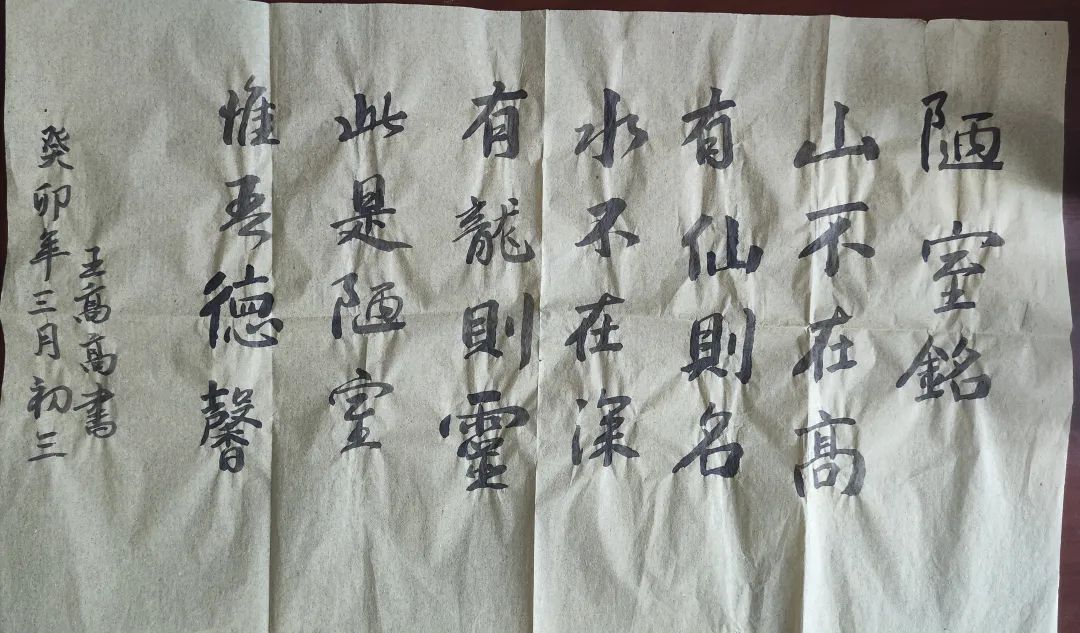 陋室銘
山不在高
有仙則名
水不在深
有龍則靈
此是陋室
惟吾德馨
王高高書
癸卯年三月初三